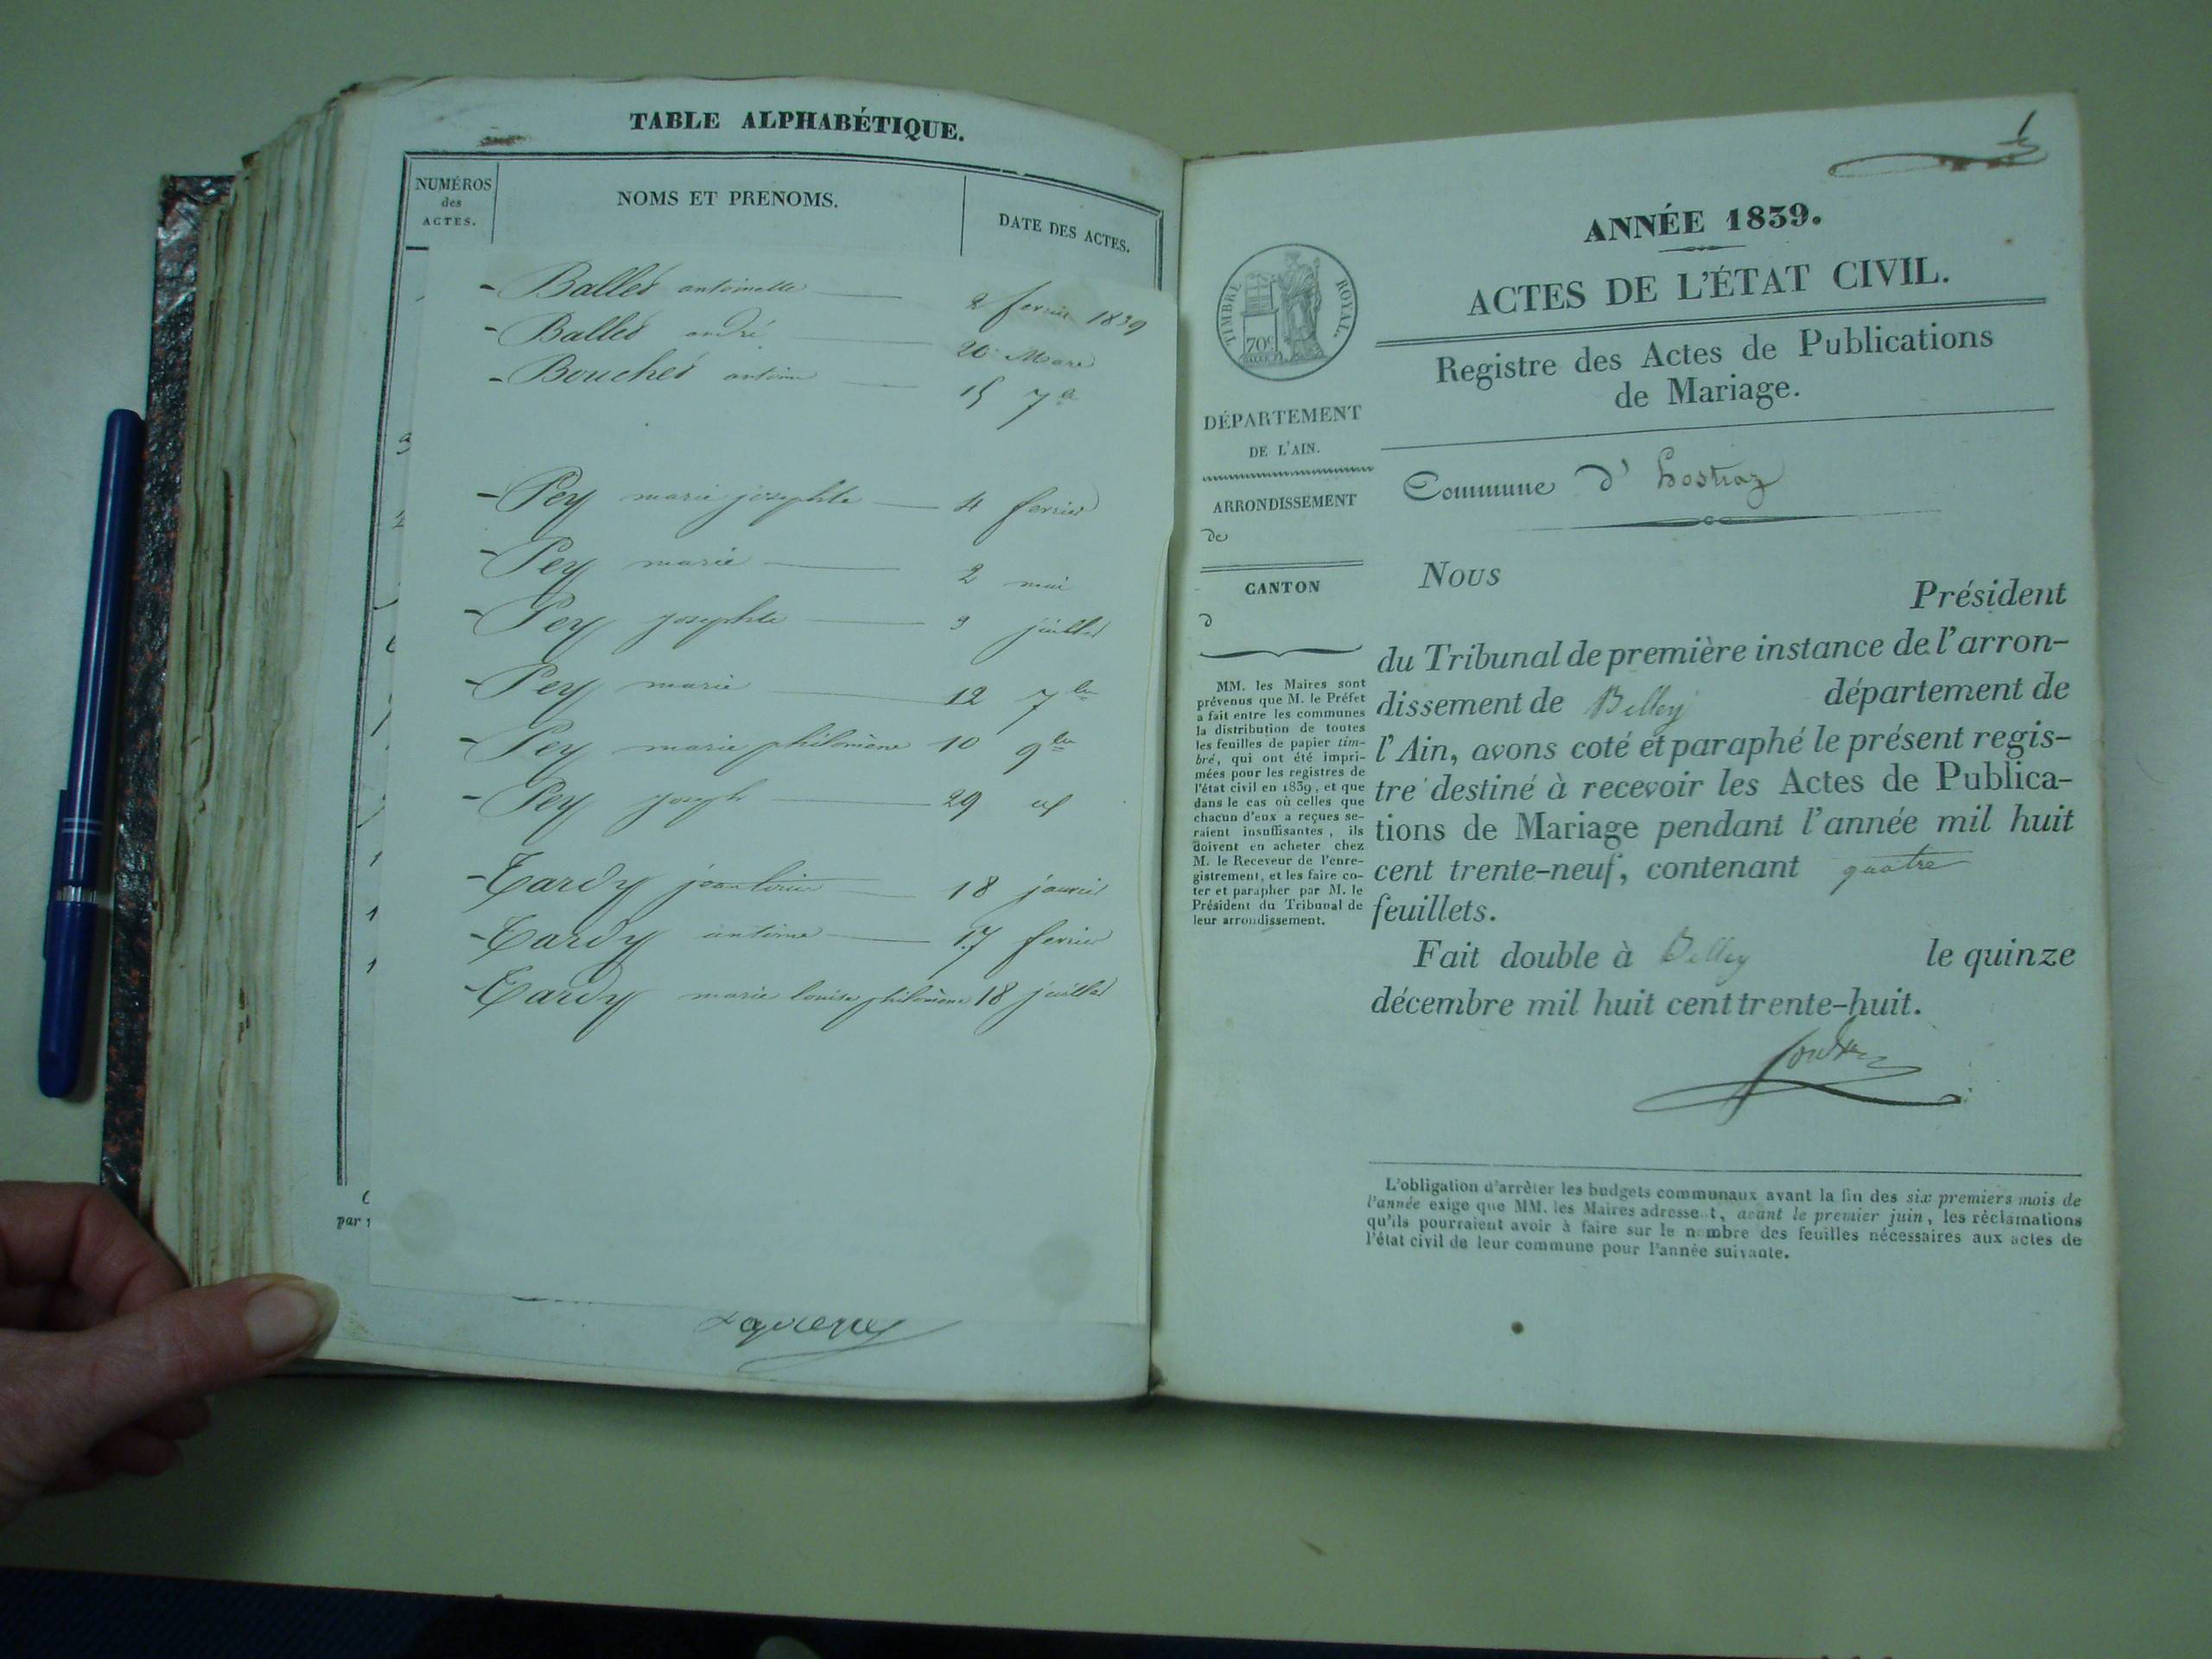 TABLE ALPHABÉTIQUE.
NUMÉROS
des
ACTES.
NOMS ET PRENOMS.
DATE DES ACTES.
- Ballet antoinette — 2 fevrier 1839
- Ballet andré — 20 Mars
- Bouchet antoine — 15 7
- Pey marie josephte — 4 fevrier
- Pey marie — 2 mai
- Pey josephte — 9 juillet
- Pey marie — 12 7bre
- Pey marie philomène 10 9bre
- Pey joseph — 29
- Tardy — 18 janvier
- Tardy antoine — 17 fevrier
- Tardy marie louise philomène 18 juillet
par
1
ANNÉE 1839.
ACTES DE L'ÉTAT CIVIL.
Registre des Actes de Publications
de Mariage.
TIMBRE ROYAL.
70c
DÉPARTEMENT
DE L'AIN.
ARRONDISSEMENT
de
CANTON
d
MM. les Maires sont
prévenus que M. le Préfet
a fait entre les communes
la distribution de toutes
les feuilles de papier tim-
bré, qui ont été impri-
mées pour les registres de
l'état civil en 1839, et que
dans le cas où celles que
chacun d'eux a reçues se-
raient insuffisantes, ils
doivent en acheter chez
M. le Receveur de l'enre-
gistrement, et les faire co-
ter et parapher par M. le
Président du Tribunal de
leur arrondissement.
Commune d' hostiaz
Nous
Président
du Tribunal de première instance de l'arron-
dissement de Belley département de
l'Ain, avons coté et paraphé le présent regis-
tre destiné à recevoir les Actes de Publica-
tions de Mariage pendant l'année mil huit
cent trente-neuf, contenant quatre
feuillets.
Fait double à Belley le quinze
décembre mil huit cent trente-huit.
L'obligation d'arrêter les budgets communaux avant la fin des six premiers mois de
l'année exige que MM. les Maires adressent, avant le premier juin, les réclamations
qu'ils pourraient avoir à faire sur le nombre des feuilles nécessaires aux actes de
l'état civil de leur commune pour l'année suivante.